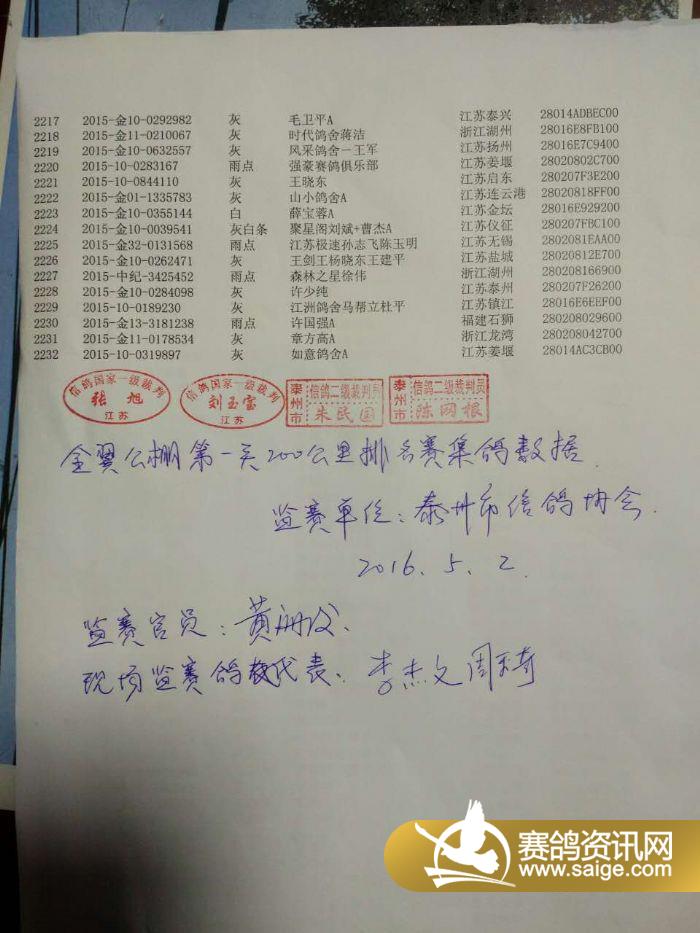 2217 2015-金10-0292982 灰 毛卫平A 江苏泰兴 28014ADBEC00
2218 2015-金11-0210067 灰 时代鸽舍蒋洁 浙江湖州 28016E8FB100
2219 2015-金10-0632557 灰 风采鸽舍－王军 江苏扬州 28016E7C9400
2220 2015-10-0283167 雨点 强豪赛鸽俱乐部 江苏姜堰 28020802C700
2221 2015-10-0844110 灰 王晓东 江苏启东 280207F3E200
2222 2015-金01-1335783 灰 山小鸽舍A 江苏连云港 28020818FF00
2223 2015-金10-0355144 白 薛宝蓉A 江苏金坛 28016E929200
2224 2015-金10-0039541 灰白条 聚星阁刘斌+曹杰A 江苏仪征 280207FBC100
2225 2015-金32-0131568 雨点 江苏极速孙志飞陈玉明 江苏无锡 2802081EAA00
2226 2015-金10-0262471 灰 王剑王杨晓东王建平 江苏盐城 28020812E700
2227 2015-中纪-3425452 雨点 森林之星徐伟 浙江湖州 280208166900
2228 2015-金10-0284098 灰 许少纯 江苏泰州 280207F26200
2229 2015-10-0189230 灰 江洲鸽舍马帮立杜平 江苏镇江 28016E6EEF00
2230 2015-金13-3181238 雨点 许国强A 福建石狮 280208029600
2231 2015-金11-0178534 灰 章方高A 浙江龙湾 280208042700
2232 2015-10-0319897 灰 如意鸽舍A 江苏姜堰 28014AC3CB00
信鸽国家一级裁判 张旭 江苏
信鸽国家一级裁判 刘玉宝 江苏
泰州市 信鸽二级裁判员 朱民国
泰州市 信鸽二级裁判员 陈网根
金翼公棚第一关200公里排名赛集鸽数据
监赛单位：泰州市信鸽协会
2016.5.2
监赛官员：黄
现场监赛鸽友代表：李杰文 周
赛鸽资讯网
www.saige.com